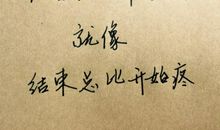 就像
结束总比开始疼